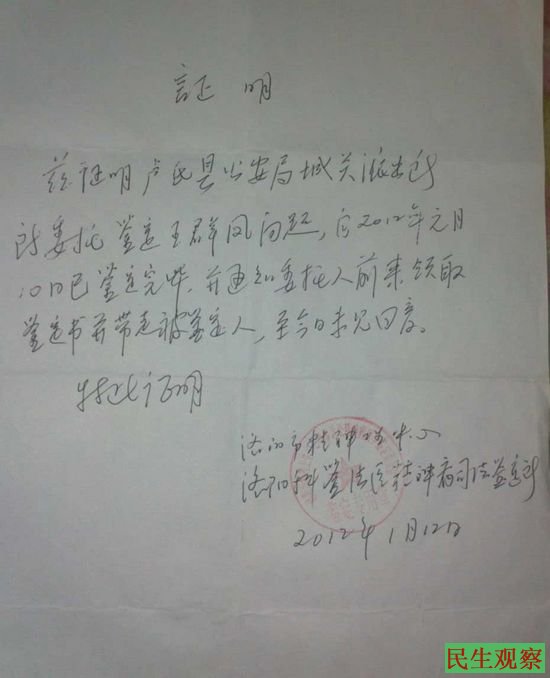 証 明
兹证明卢氏县公安局城关派出所
所委托鉴定王群凤问题,自2012年元月
10日已鉴定完毕,并通知委托人前来领取
鉴定书并带走被鉴定人,至今日未见回音。
特此证明
洛阳市精神病中心
洛阳科鉴法医精神病司法鉴定所
2012年1月12日
民生观察